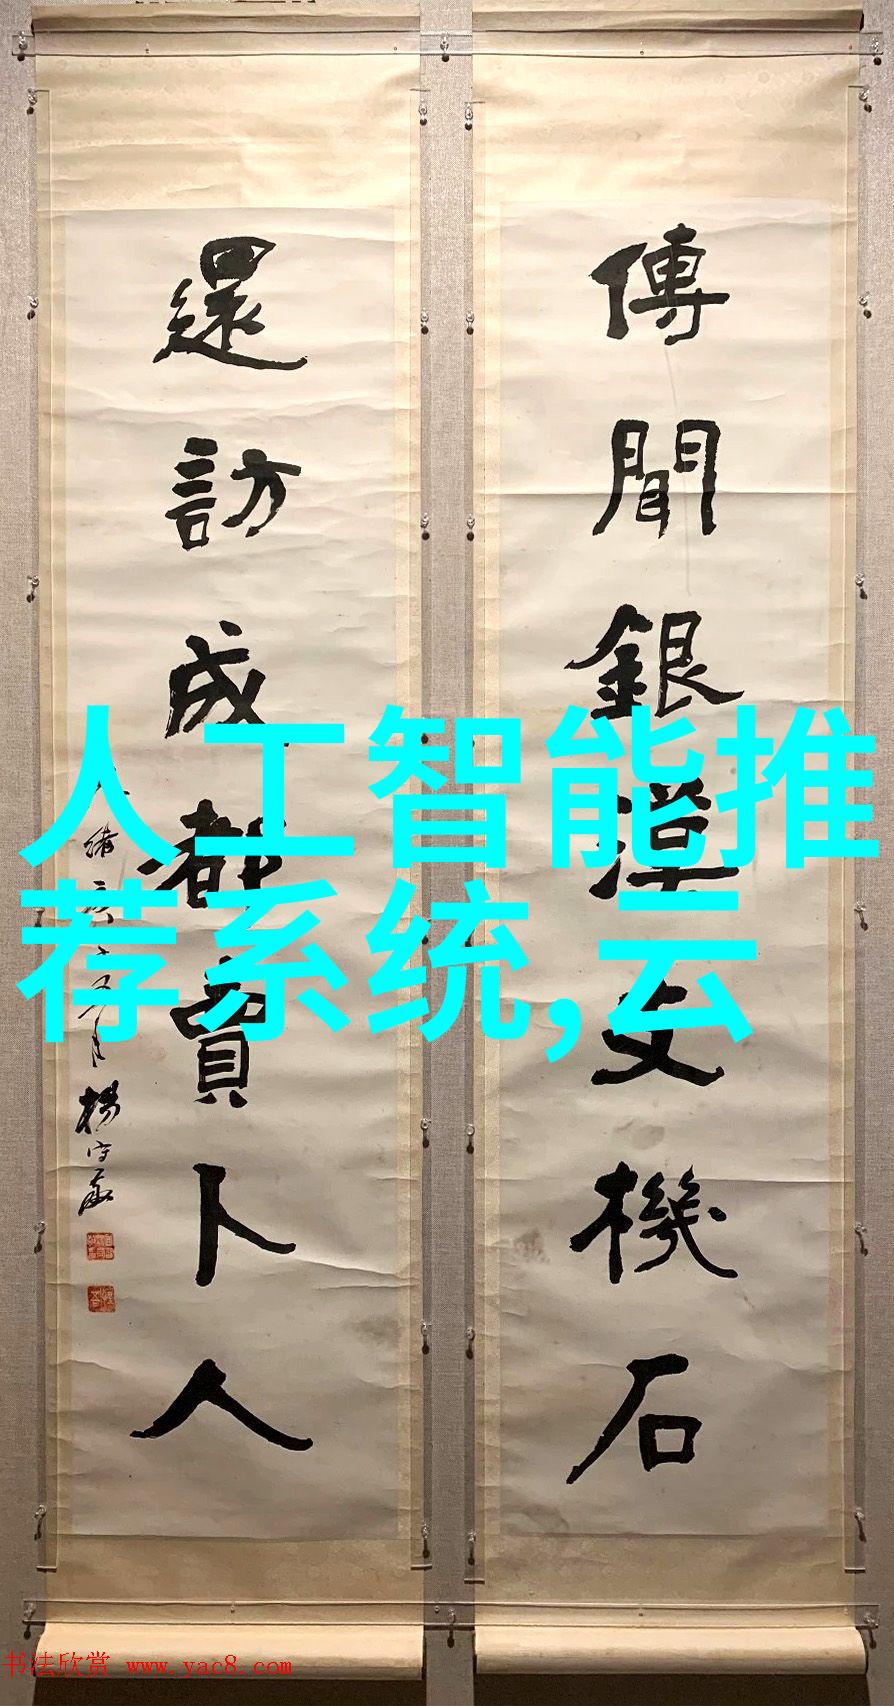 傳聞銀漢支機石
還訪成都賣卜人
楊守敬
人工智能推
荐系统,云
书法欣赏 www.yac8.com